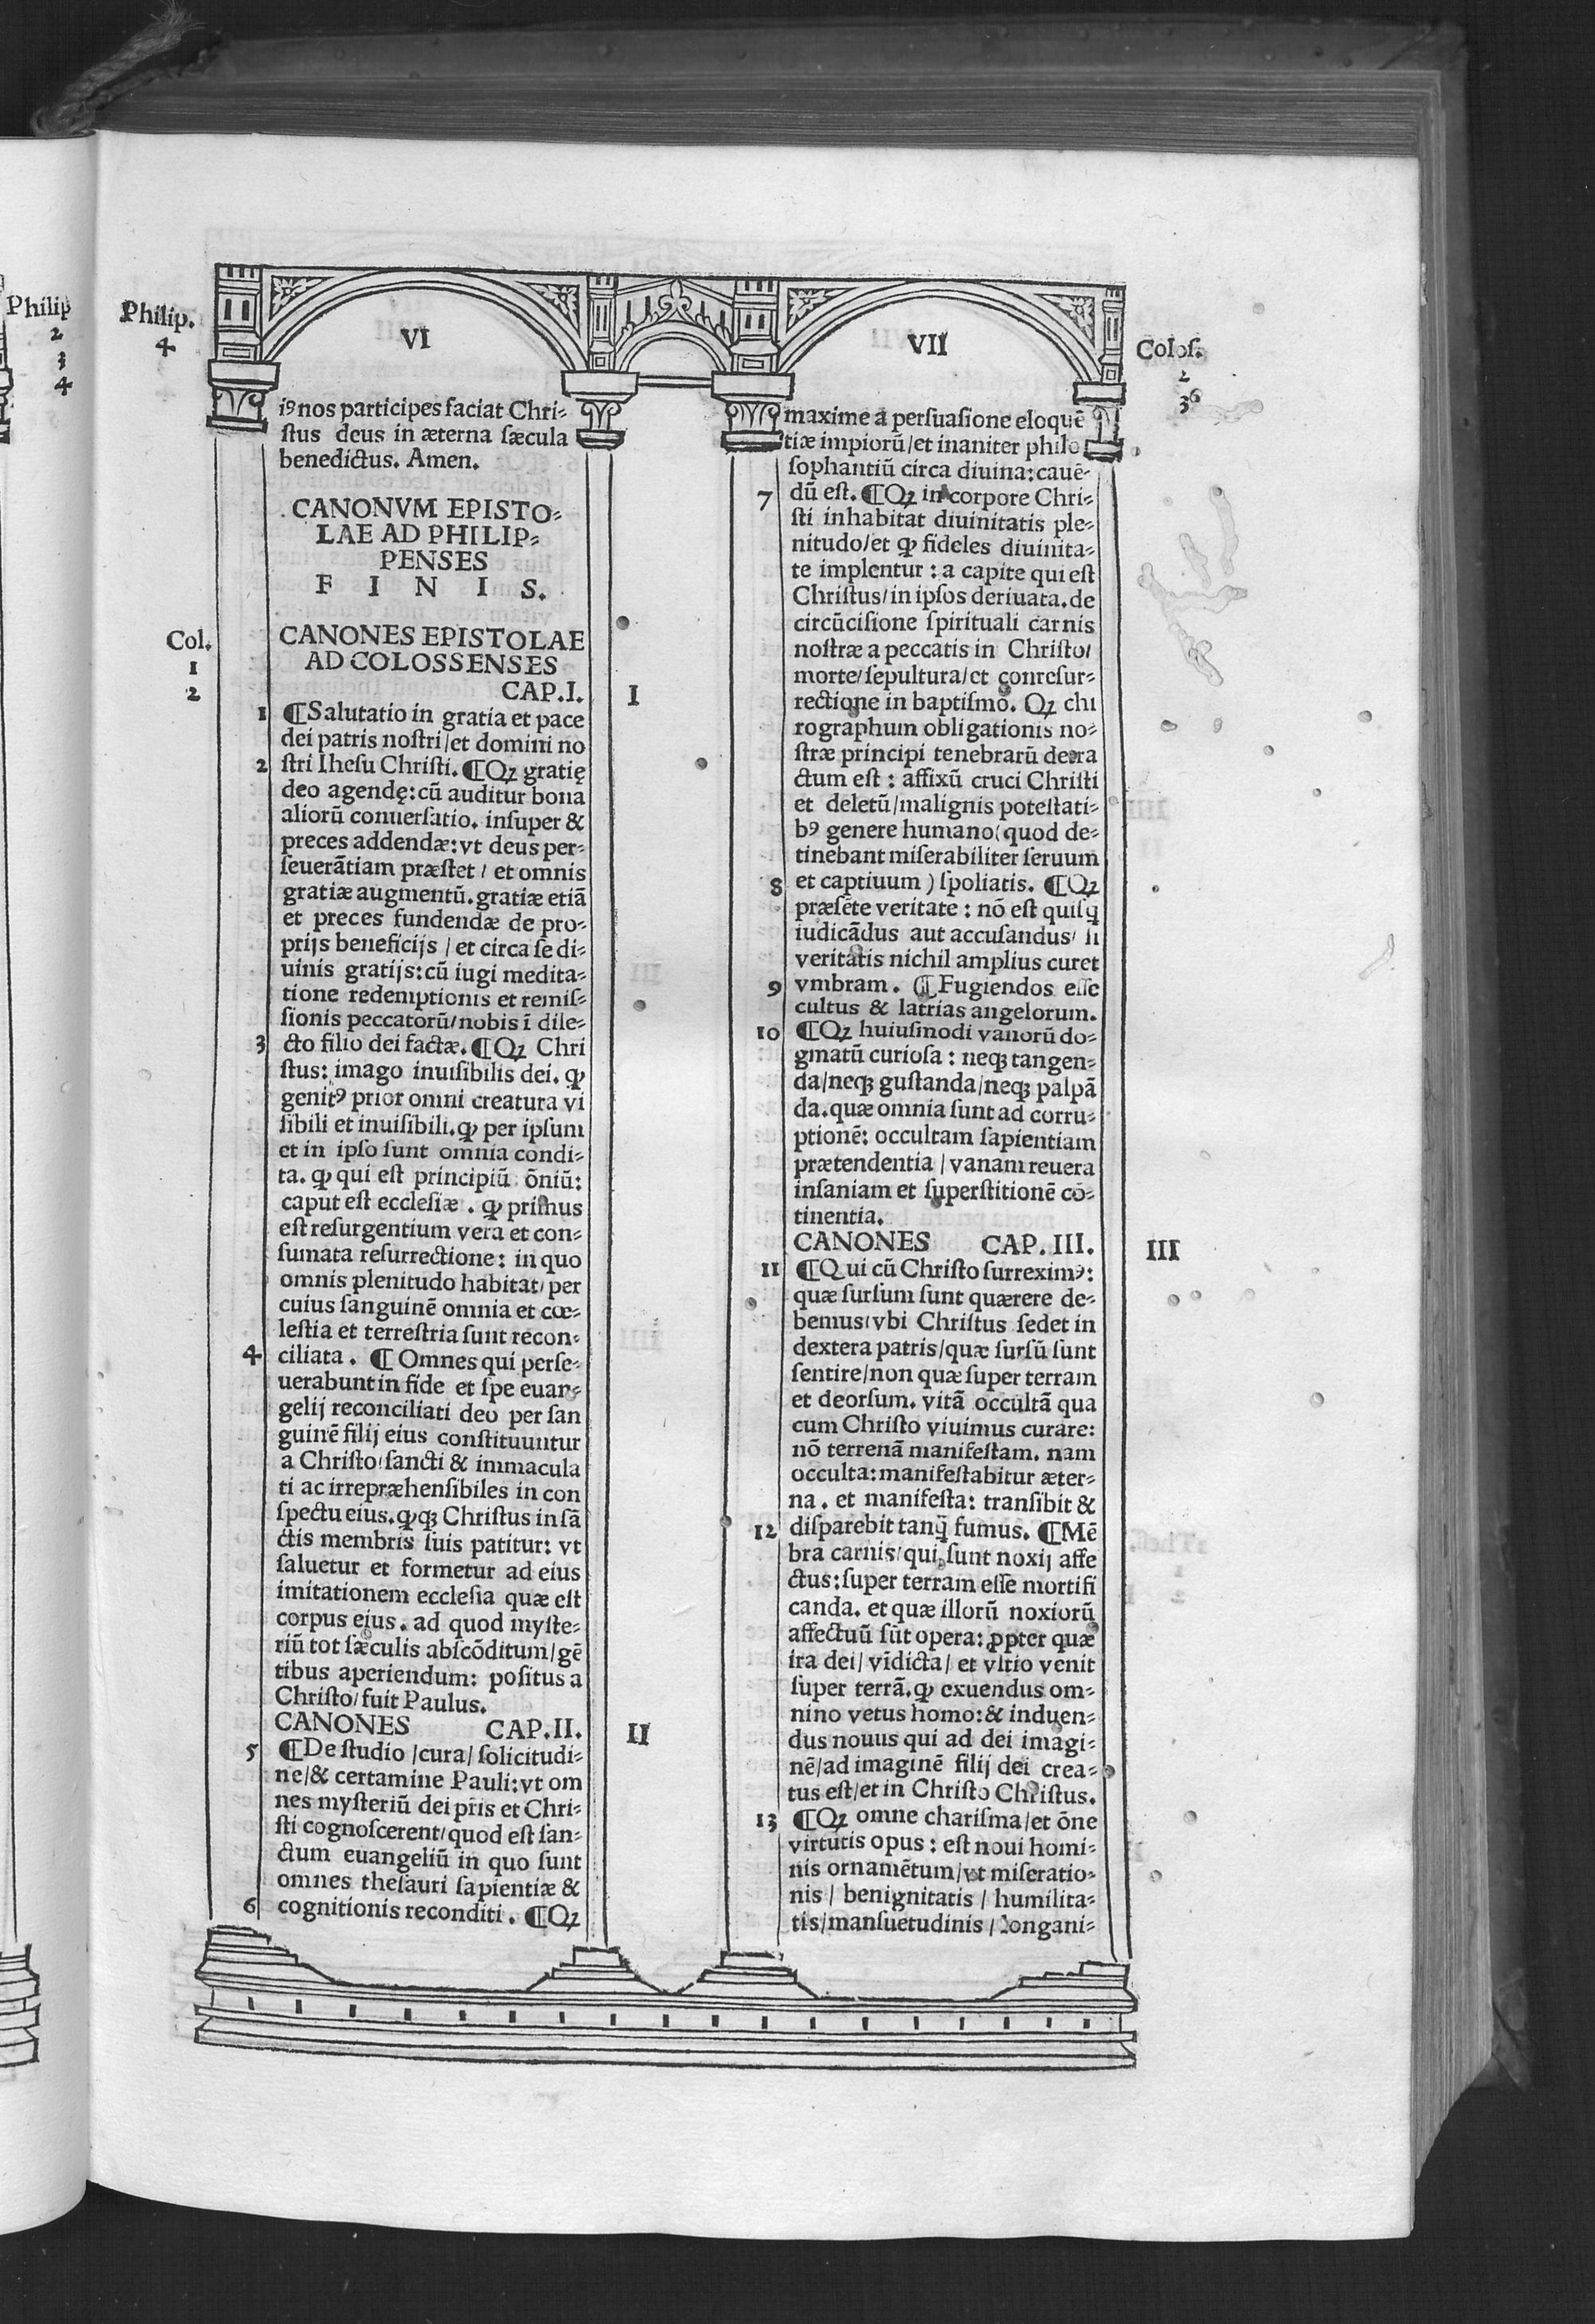 Philip
2
3
4
Philip.
4
VI
iꝰ nos participes faciat Chri⸗
ſtus deus in æterna ſæcula
benedictus. Amen.
CANONVM EPISTO⸗
LAE AD PHILIP⸗
PENSES
F I N I S.
Col.
1
2
CANONES EPISTOLAE
AD COLOSSENSES
CAP.I. I
1 ¶Salutatio in gratia et pace
dei patris noſtri/et domini no
2 ſtri Iheſu Chriſti. ¶Qꝫ gratię
deo agendę:cū auditur bona
aliorū conuerſatio. inſuper &
preces addendæ:vt deus per⸗
ſeuerātiam præſtet / et omnis
gratiæ augmentū. gratiæ etiā
et preces fundendæ de pro⸗
prijs beneficijs / et circa ſe di⸗
uinis gratijs:cū iugi medita⸗
tione redemptionis et remiſ⸗
ſionis peccatorū/nobis ī dile⸗
3 cto filio dei factæ. ¶Qꝫ Chri
ſtus: imago inuiſibilis dei. ꝙ
genitꝰ prior omni creatura vi
ſibili et inuiſibili.ꝙ per ipſum
et in ipſo ſunt omnia condi⸗
ta. ꝙ qui eſt principiū ōniū:
caput eſt eccleſiæ . ꝙ primus
eſt reſurgentium vera et con⸗
ſumata reſurrectione: in quo
omnis plenitudo habitat/ per
cuius ſanguinē omnia et cœ⸗
leſtia et terreſtria ſunt recon⸗
4 ciliata . ¶ Omnes qui perſe⸗
uerabunt in fide et ſpe euan⸗
gelij reconciliati deo per ſan
guinē filij eius conſtituuntur
a Chriſto/ſancti & immacula
ti ac irrepræhenſibiles in con
ſpectu eius. ꝙqꝫ Chriſtus in ſā
ctis membris ſuis patitur: vt
ſaluetur et formetur ad eius
imitationem eccleſia quæ eſt
corpus eius. ad quod myſte⸗
riū tot ſæculis abſcōditum/gē
tibus aperiendum: poſitus a
Chriſto/fuit Paulus.
CANONES CAP.II. II
5 ¶De ſtudio /cura/ ſolicitudi⸗
ne/& certamine Pauli:vt om
nes myſteriū dei pr̄is et Chri⸗
ſti cognoſcerent/quod eſt ſan⸗
ctum euangeliū in quo ſunt
omnes theſauri ſapientiæ &
6 cognitionis reconditi . ¶Qꝫ
VII
Coloſ.
2
3⁶
maxime a perſuaſione eloquē
tiæ impiorū/et inaniter philo
ſophantiū circa diuina:cauē⸗
7 dū eſt. ¶Qꝫ in corpore Chri⸗
ſti inhabitat diuinitatis ple⸗
nitudo/et ꝙ fideles diuinita⸗
te implentur : a capite qui eſt
Chriſtus/in ipſos deriuata. de
circūciſione ſpirituali carnis
noſtræ a peccatis in Chriſto/
morte/ſepultura/et conreſur⸗
rectione in baptiſmo. Qꝫ chi
rographum obligationis no⸗
ſtræ principi tenebrarū detra
ctum eſt : affixū cruci Chriſti
et deletū/malignis poteſtati⸗
bꝰ genere humano(quod de⸗
tinebant miſerabiliter ſeruum
8 et captiuum ) ſpoliatis. ¶Qꝫ
præſēte veritate : nō eſt quiſꝗ
iudicādus aut accuſandus/ ſi
veritatis nichil amplius curet
9 vmbram . ¶Fugiendos eſſe
cultus & latrias angelorum.
10 ¶Qꝫ huiuſmodi vanorū do⸗
gmatū curioſa : neqꝫ tangen⸗
da/neqꝫ guſtanda/neqꝫ palpā
da.quæ omnia ſunt ad corru⸗
ptionē: occultam ſapientiam
prætendentia / vanam reuera
inſaniam et ſuperſtitionē cō⸗
tinentia.
CANONES CAP. III. III
11 ¶Qui cū Chriſto ſurreximꝰ:
quæ ſurſum ſunt quærere de⸗
bemus/vbi Chriſtus ſedet in
dextera patris/quæ ſurſū ſunt
ſentire/non quæ ſuper terram
et deorſum. vitā occultā qua
cum Chriſto viuimus curare:
nō terrenā manifeſtam. nam
occulta:manifeſtabitur æter⸗
na . et manifeſta: tranſibit &
12 diſparebit tanꝗ̄ fumus. ¶Mē
bra carnis/qui ſunt noxij affe
ctus:ſuper terram eſſe mortifi
canda. et quæ illorū noxiorū
affectuū ſūt opera: ꝓpter quæ
ira dei/ vīdicta/ et vltio venit
ſuper terrā. ꝙ exuendus om⸗
nino vetus homo:& induen⸗
dus nouus qui ad dei imagi⸗
nē/ad imaginē filij dei crea⸗
tus eſt/et in Chriſto Chriſtus.
13 ¶Qꝫ omne chariſma/et ōne
virtutis opus : eſt noui homi⸗
nis ornamētum/vt miſeratio⸗
nis / benignitatis / humilita⸗
tis/manſuetudinis / longani⸗